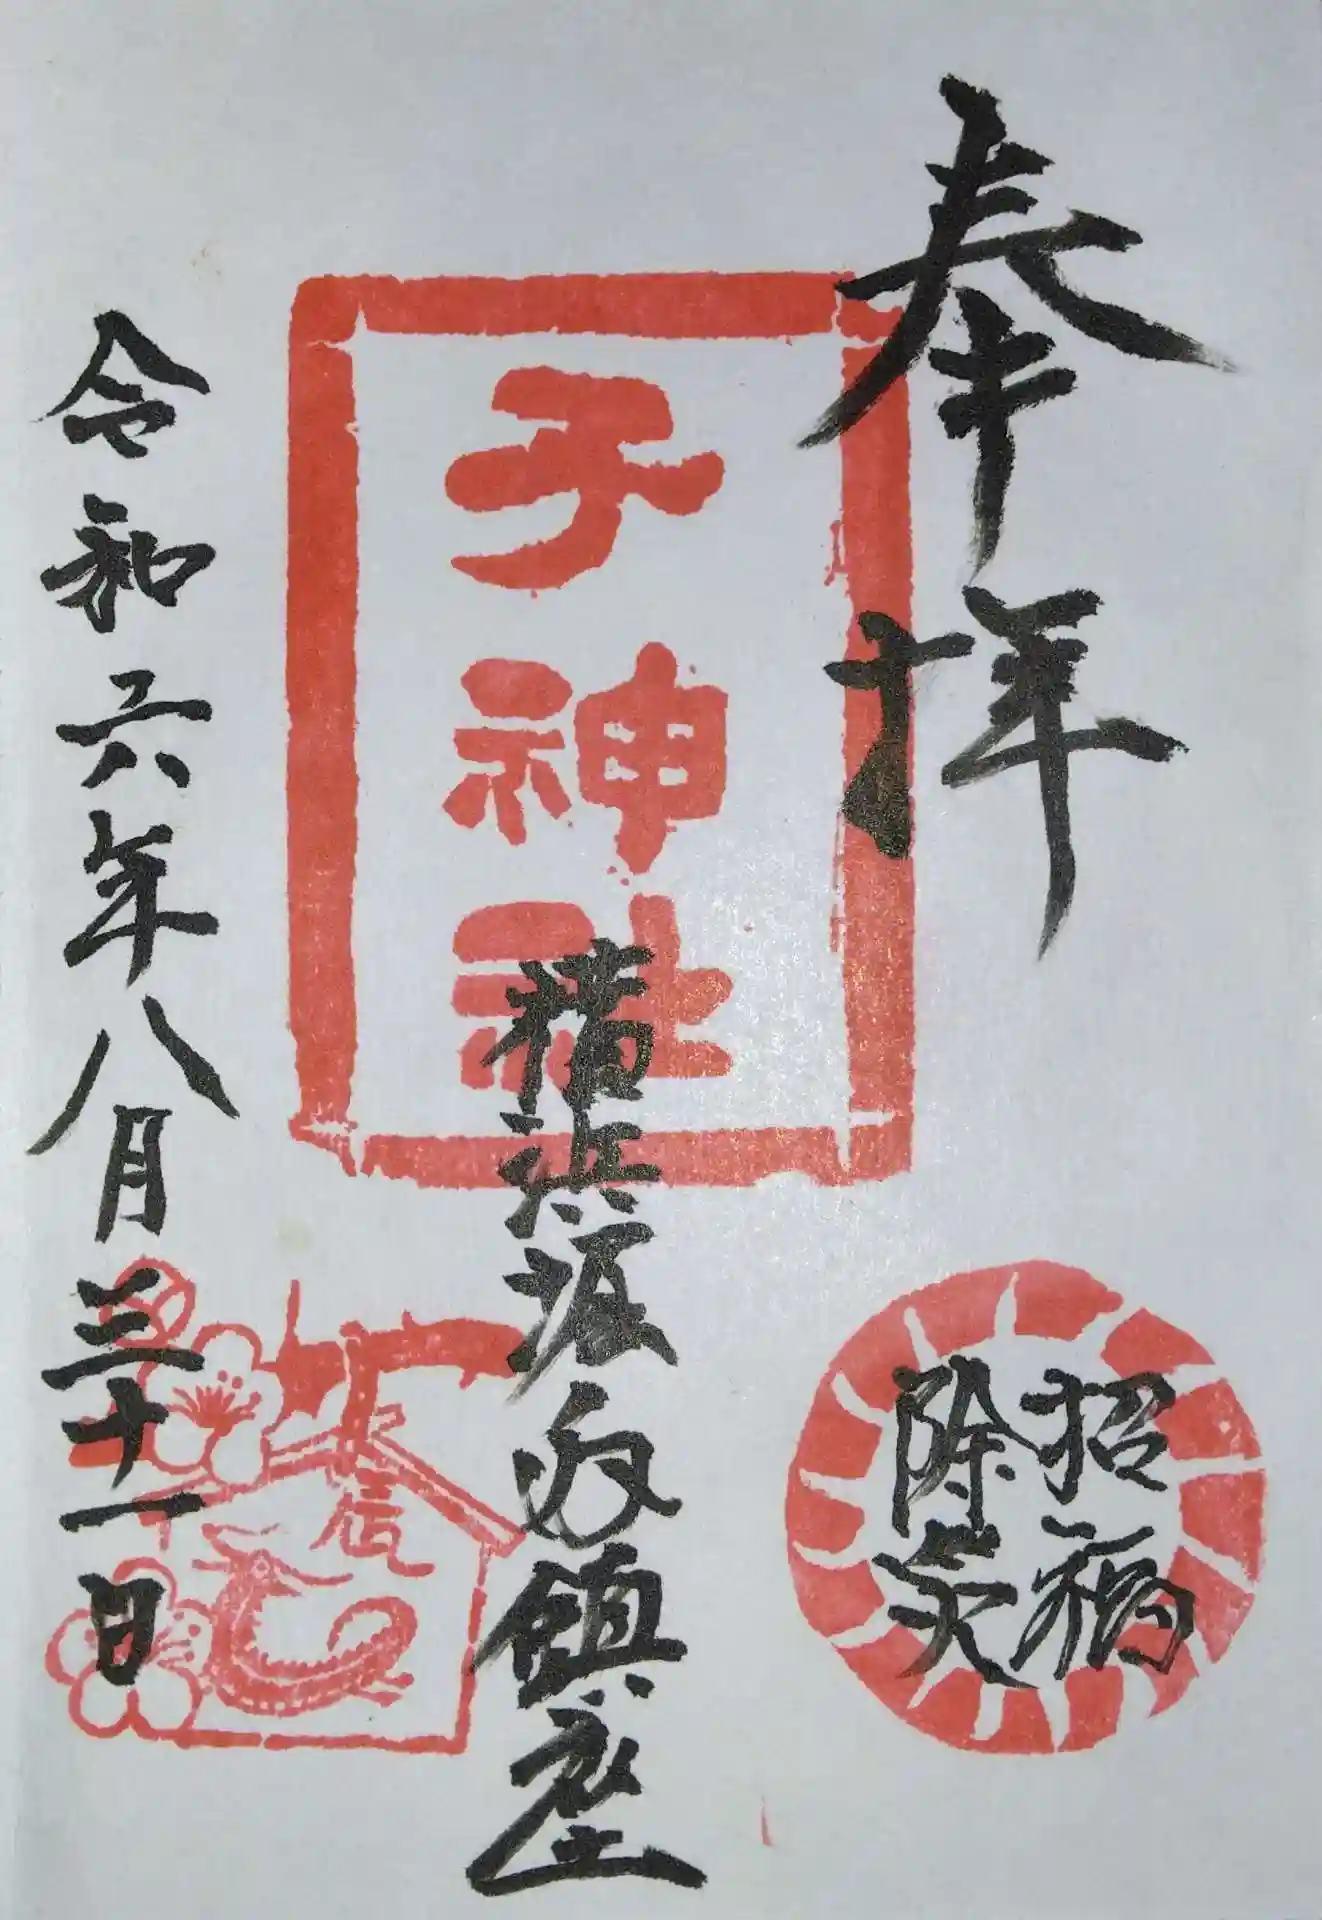 奉拝
招福
除災
子神社
横浜港南鎮座
辰
令和六年八月三十一日